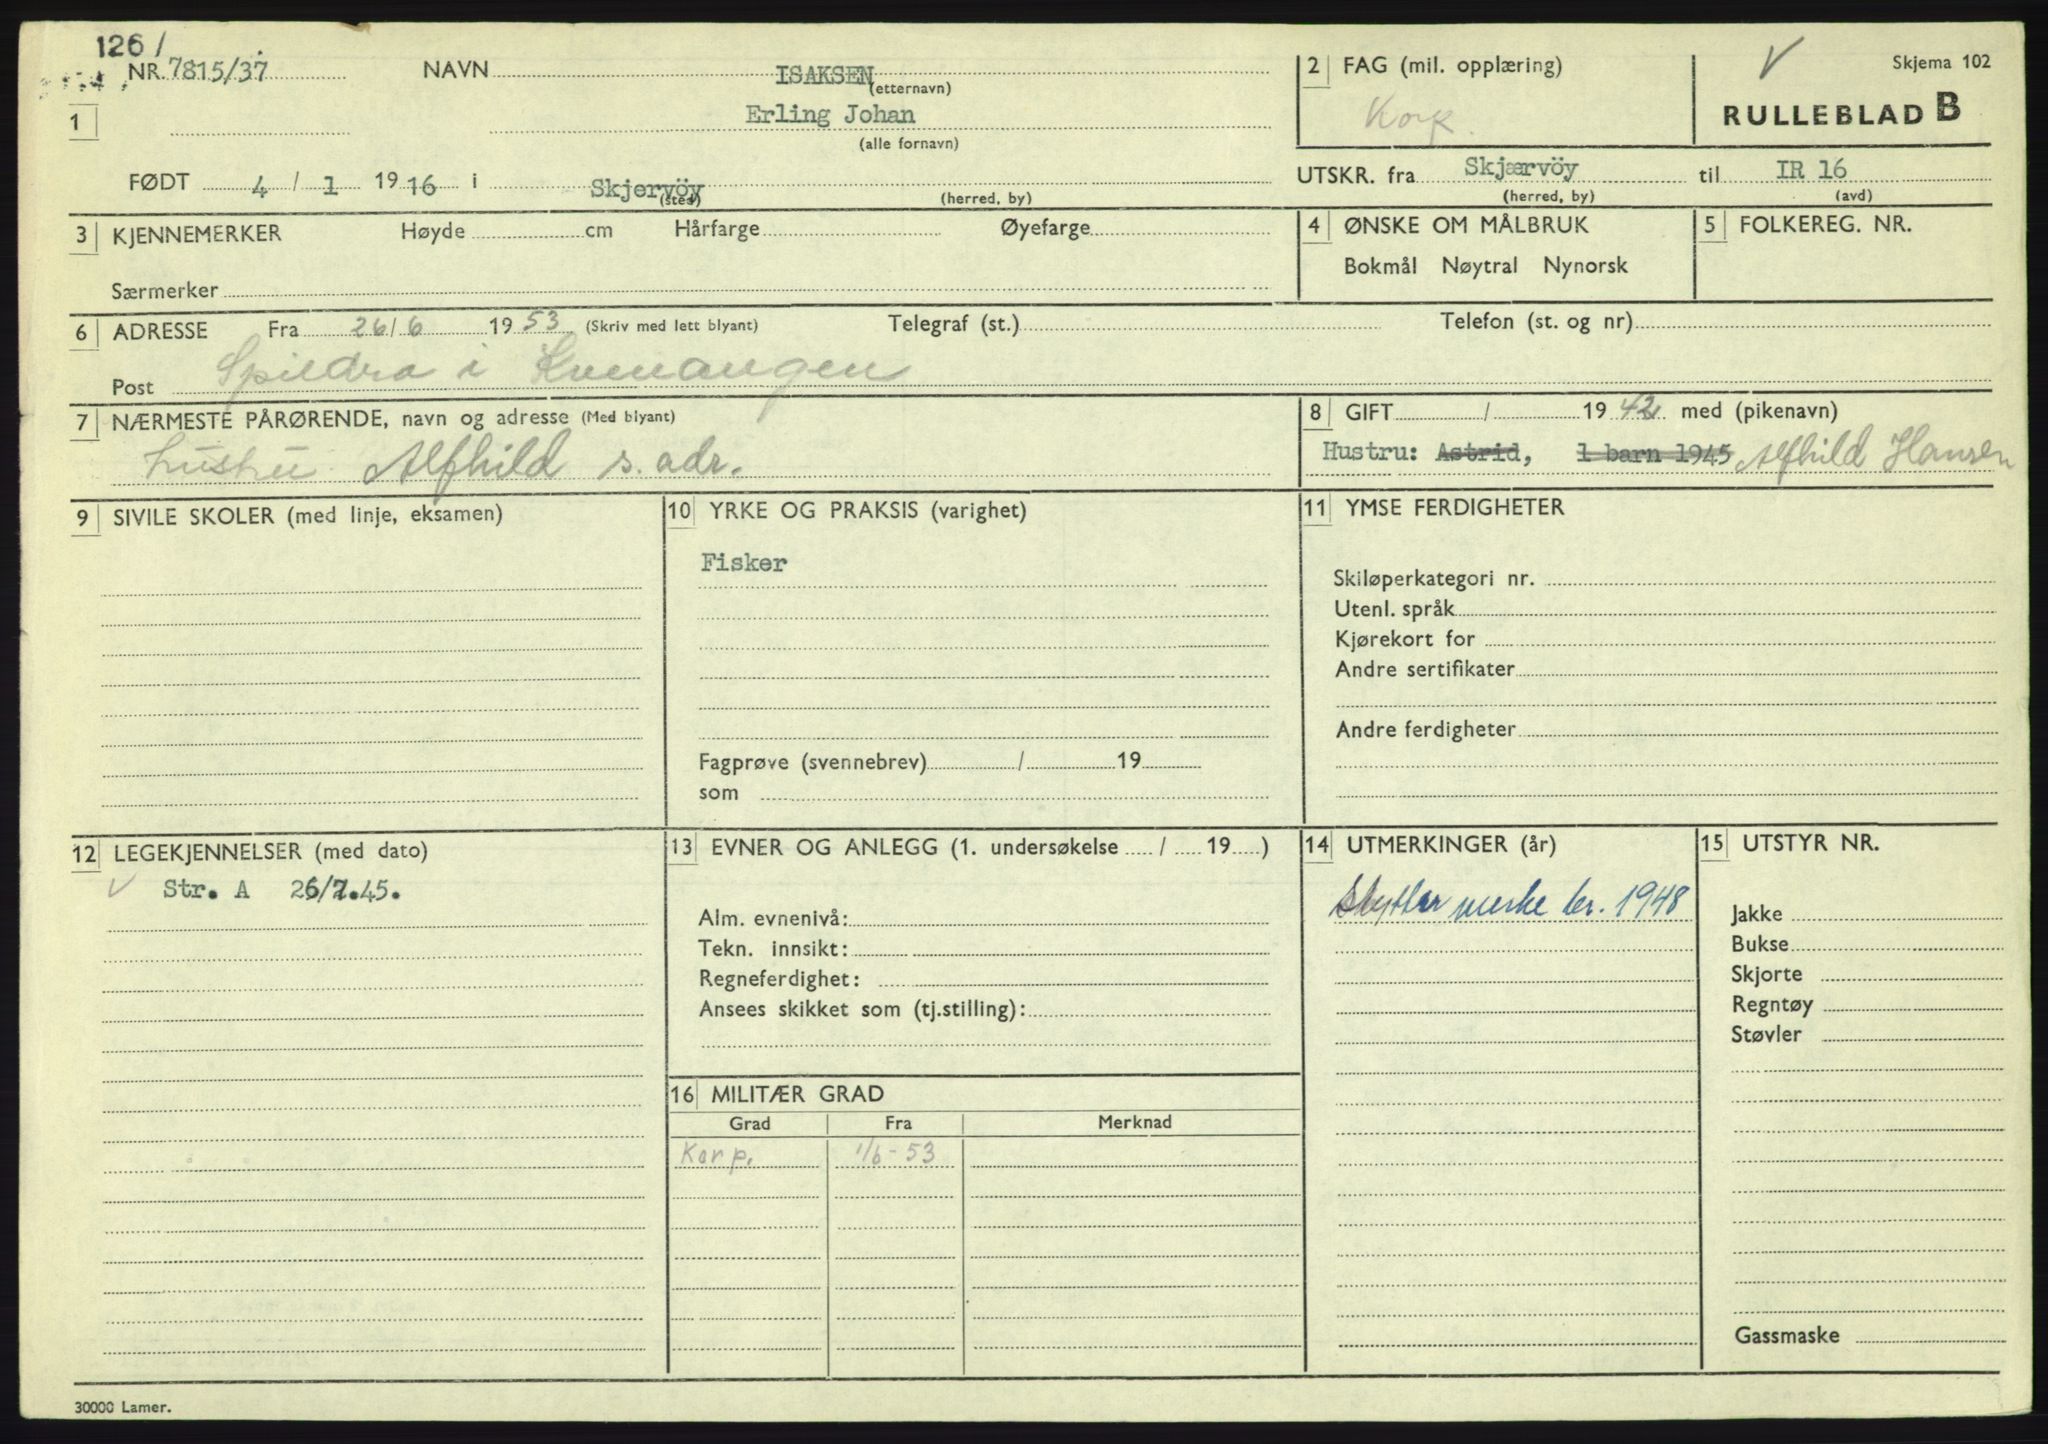 126/
NR. 7815/37 NAVN ISAKSEN
(etternavn)
1 Erling Johan
(alle fornavn)
FØDT 4 / 1 1916 i Skjervöy
(sted) (herred, by)
2 FAG (mil. opplæring)
Korp.
V Skjema 102
RULLEBLAD B
UTSKR. fra Skjærvöy til IR 16
(herred, by) (avd)
3 KJENNEMERKER Høyde cm Hårfarge Øyefarge
Særmerker
4 ØNSKE OM MÅLBRUK
Bokmål Nøytral Nynorsk
5 FOLKEREG. NR.
6 ADRESSE Fra 26/6 1953 (Skriv med lett blyant) Telegraf (st.) Telefon (st. og nr)
Post Spildra i Kvenangen
7 NÆRMESTE PÅRØRENDE, navn og adresse (Med blyant)
hustru Alfhild s. adr.
8 GIFT / 1942 med (pikenavn)
Hustru: Astrid, 1 barn 1945 Alfhild Hansen
9 SIVILE SKOLER (med linje, eksamen)
10 YRKE OG PRAKSIS (varighet)
Fisker
Fagprøve (svennebrev) / 19
som
11 YMSE FERDIGHETER
Skiløperkategori nr.
Utenl. språk
Kjørekort for
Andre sertifikater
Andre ferdigheter
12 LEGEKJENNELSER (med dato)
V Str. A 26/7.45.
13 EVNER OG ANLEGG (1. undersøkelse / 19 )
Alm. evnenivå:
Tekn. innsikt:
Regneferdighet:
Ansees skikket som (tj.stilling):
14 UTMERKINGER (år)
Skyttermerke br. 1948
15 UTSTYR NR.
Jakke
Bukse
Skjorte
Regntøy
Støvler
Gassmaske
16 MILITÆR GRAD
Grad Fra Merknad
Korp. 1/6-53
30000 Lamer.